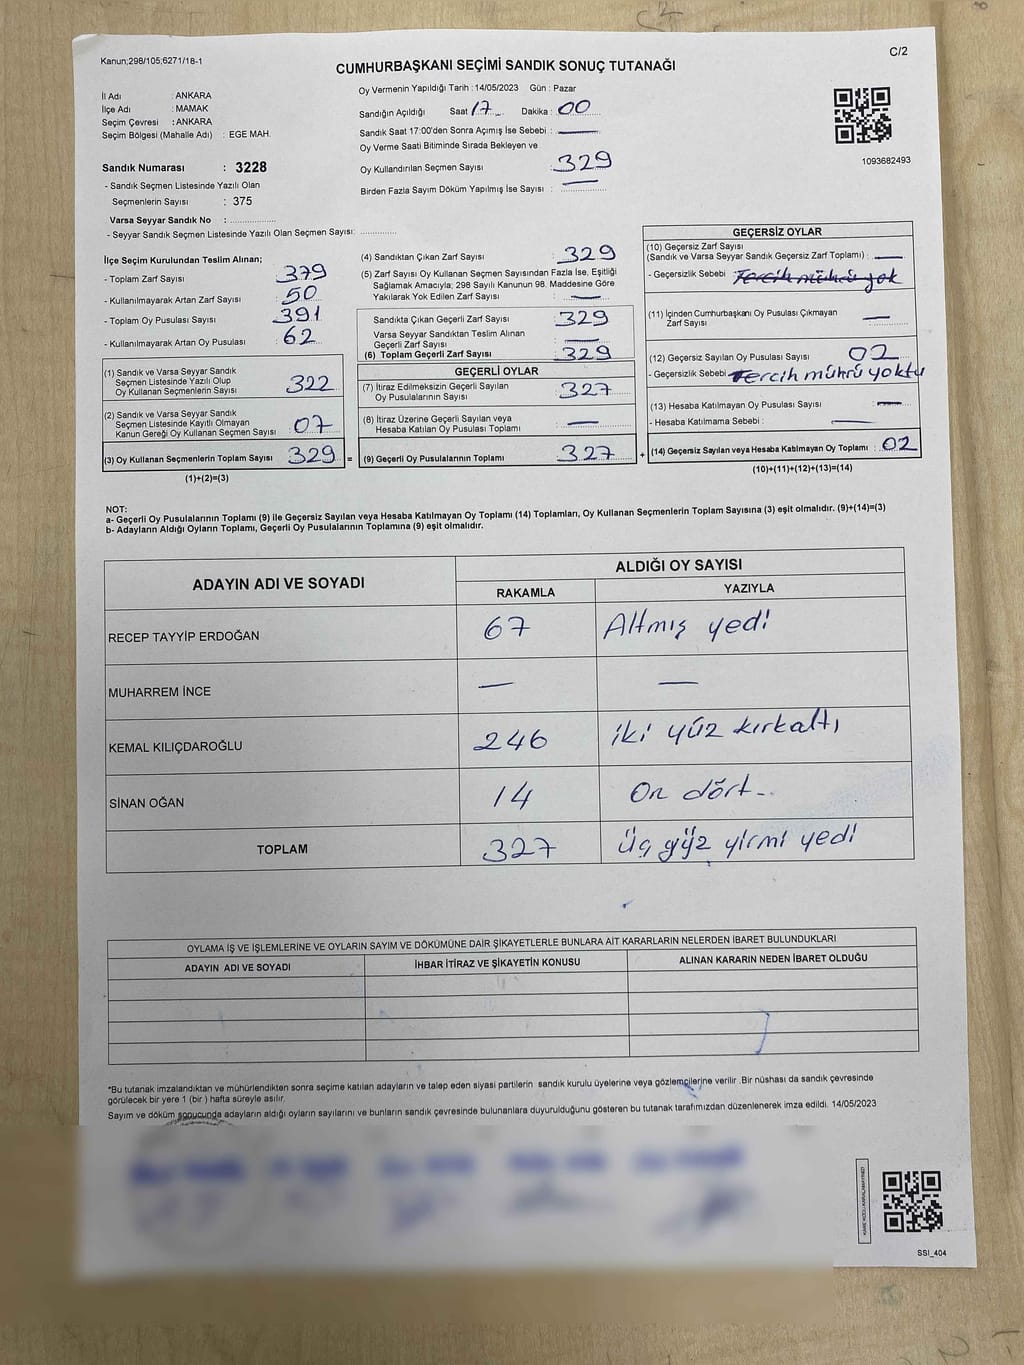 Kanun;298/105;6271/18-1
C/2
CUMHURBAŞKANI SEÇİMİ SANDIK SONUÇ TUTANAĞI
İl Adı : ANKARA
İlçe Adı : MAMAK
Seçim Çevresi : ANKARA
Seçim Bölgesi (Mahalle Adı) : EGE MAH.
Sandık Numarası : 3228
- Sandık Seçmen Listesinde Yazılı Olan
Seçmenlerin Sayısı : 375
Varsa Seyyar Sandık No : ....................
- Seyyar Sandık Seçmen Listesinde Yazılı Olan Seçmen Sayısı: ...............
Oy Vermenin Yapıldığı Tarih : 14/05/2023 Gün : Pazar
Sandığın Açıldığı Saat 17 Dakika : 00
Sandık Saat 17:00'den Sonra Açımış İse Sebebi : —
Oy Verme Saati Bitiminde Sırada Bekleyen ve
Oy Kullandırılan Seçmen Sayısı : 329
Birden Fazla Sayım Döküm Yapılmış İse Sayısı : —
1093682493
İlçe Seçim Kurulundan Teslim Alınan;
- Toplam Zarf Sayısı : 379
- Kullanılmayarak Artan Zarf Sayısı : 50
- Toplam Oy Pusulası Sayısı : 391
- Kullanılmayarak Artan Oy Pusulası : 62
(1) Sandık ve Varsa Seyyar Sandık
Seçmen Listesinde Yazılı Olup
Oy Kullanan Seçmenlerin Sayısı : 322
(2) Sandık ve Varsa Seyyar Sandık
Seçmen Listesinde Kayıtlı Olmayan
Kanun Gereği Oy Kullanan Seçmen Sayısı : 07
(3) Oy Kullanan Seçmenlerin Toplam Sayısı : 329 =
(1)+(2)=(3)
(4) Sandıktan Çıkan Zarf Sayısı : 329
(5) Zarf Sayısı Oy Kullanan Seçmen Sayısından Fazla İse, Eşitliği
Sağlamak Amacıyla; 298 Sayılı Kanunun 98. Maddesine Göre
Yakılarak Yok Edilen Zarf Sayısı : —
Sandıkta Çıkan Geçerli Zarf Sayısı : 329
Varsa Seyyar Sandıktan Teslim Alınan
Geçerli Zarf Sayısı : —
(6) Toplam Geçerli Zarf Sayısı : 329
GEÇERLİ OYLAR
(7) İtiraz Edilmeksizin Geçerli Sayılan
Oy Pusulalarının Sayısı : 327
(8) İtiraz Üzerine Geçerli Sayılan veya
Hesaba Katılan Oy Pusulası Toplamı : —
(9) Geçerli Oy Pusulalarının Toplamı : 327 +
GEÇERSİZ OYLAR
(10) Geçersiz Zarf Sayısı
(Sandık ve Varsa Seyyar Sandık Geçersiz Zarf Toplamı) : —
- Geçersizlik Sebebi : Tercih mührü yok
(11) İçinden Cumhurbaşkanı Oy Pusulası Çıkmayan
Zarf Sayısı : —
(12) Geçersiz Sayılan Oy Pusulası Sayısı : 02
- Geçersizlik Sebebi : Tercih mührü yoktu
(13) Hesaba Katılmayan Oy Pusulası Sayısı : —
- Hesaba Katılmama Sebebi : —
(14) Geçersiz Sayılan veya Hesaba Katılmayan Oy Toplamı : 02
(10)+(11)+(12)+(13)=(14)
NOT:
a- Geçerli Oy Pusulalarının Toplamı (9) ile Geçersiz Sayılan veya Hesaba Katılmayan Oy Toplamı (14) Toplamları, Oy Kullanan Seçmenlerin Toplam Sayısına (3) eşit olmalıdır. (9)+(14)=(3)
b- Adayların Aldığı Oyların Toplamı, Geçerli Oy Pusulalarının Toplamına (9) eşit olmalıdır.
ADAYIN ADI VE SOYADI ALDIĞI OY SAYISI
RAKAMLA YAZIYLA
RECEP TAYYİP ERDOĞAN 67 Altmış yedi
MUHARREM İNCE — —
KEMAL KILIÇDAROĞLU 246 iki yüz kırkaltı
SİNAN OĞAN 14 On dört-
TOPLAM 327 üç yüz yirmi yedi
OYLAMA İŞ VE İŞLEMLERİNE VE OYLARIN SAYIM VE DÖKÜMÜNE DAİR ŞİKAYETLERLE BUNLARA AİT KARARLARIN NELERDEN İBARET BULUNDUKLARI
ADAYIN ADI VE SOYADI İHBAR İTİRAZ VE ŞİKAYETİN KONUSU ALINAN KARARIN NEDEN İBARET OLDUĞU
*Bu tutanak imzalandıktan ve mühürlendikten sonra seçime katılan adayların ve talep eden siyasi partilerin sandık kurulu üyelerine veya gözlemçilerine verilir .Bir nüshası da sandık çevresinde
görülecek bir yere 1 (bir ) hafta süreyle asılır.
Sayım ve döküm sonucunda adayların aldığı oyların sayılarını ve bunların sandık çevresinde bulunanlara duyurulduğunu gösteren bu tutanak tarafımızdan düzenlenerek imza edildi. 14/05/2023
SSI_404